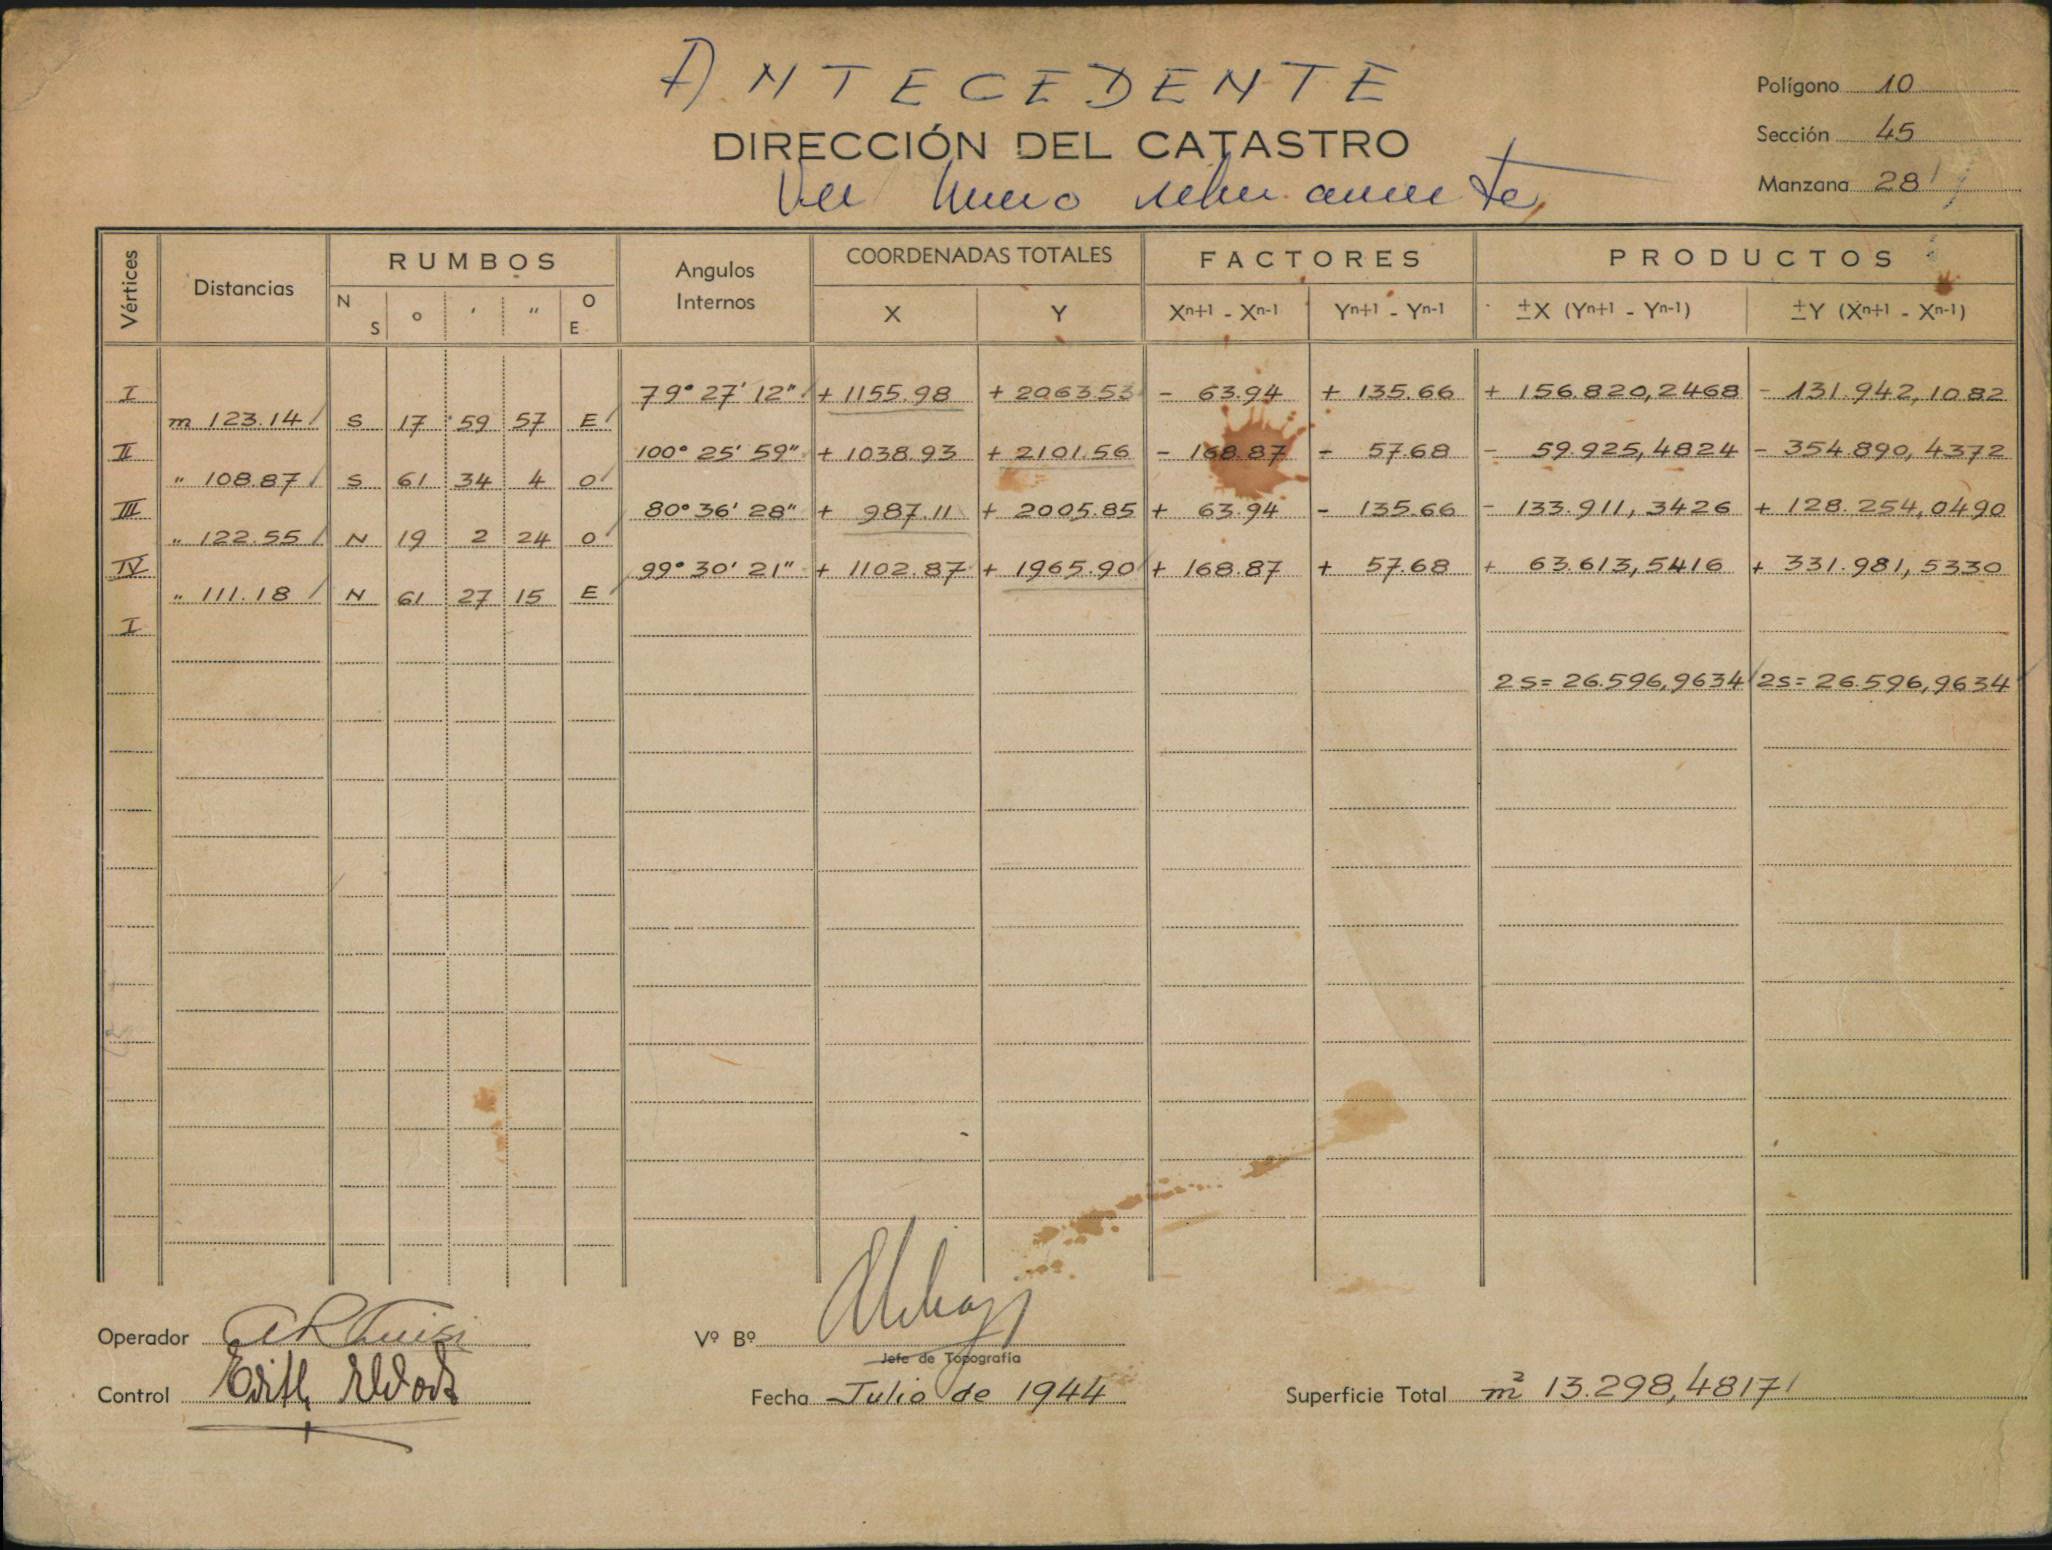 ANTECEDENTE
DIRECCIÓN DEL CATASTRO
Ver nuevo relevamiento
Polígono 10
Sección 45
Manzana 28
Vértices
Distancias
RUMBOS
N S
o
'
"
O E
Angulos Internos
COORDENADAS TOTALES
X
Y
FACTORES
Xn+1 - Xn-1
Yn+1 - Yn-1
PRODUCTOS
±X (Yn+1 - Yn-1)
±Y (Xn+1 - Xn-1)
I 79° 27' 12" + 1155.98 + 2063.53 - 63.94 + 135.66 + 156.820,2468 - 131.942,1082
m 123.14 S 17 59 57 E
II 100° 25' 59" + 1038.93 + 2101.56 - 168.87 - 57.68 - 59.925,4824 - 354.890,4372
" 108.87 S 61 34 4 O
III 80° 36' 28" + 987.11 + 2005.85 + 63.94 - 135.66 - 133.911,3426 + 128.254,0490
" 122.55 N 19 2 24 O
IV 99° 30' 21" + 1102.87 + 1965.90 + 168.87 + 57.68 + 63.613,5416 + 331.981,5330
" 111.18 N 61 27 15 E
I
2s= 26.596,9634 2s= 26.596,9634
Operador
Vº Bº
Jefe de Topografía
Control Edith
Fecha Julio de 1944
Superficie Total m² 13.298,4817